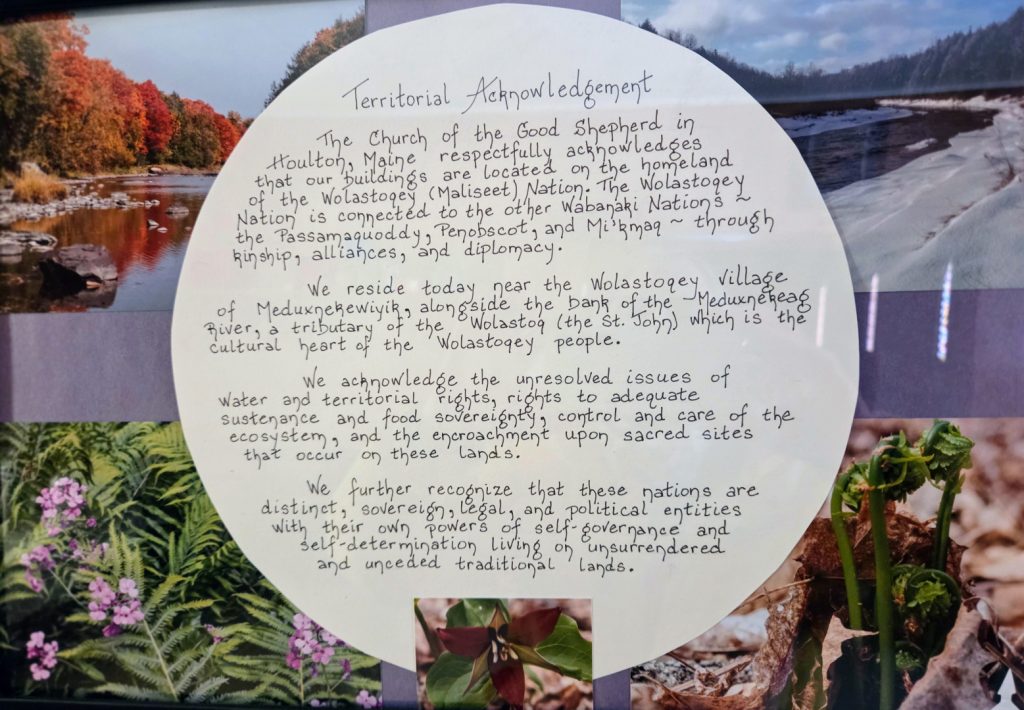 Territorial Acknowledgement
The Church of the Good Shepherd in
Houlton, Maine respectfully acknowledges
that our buildings are located on the homeland
of the Wolastoqey (Maliseet) Nation. The Wolastoqey
Nation is connected to the other Wabanaki Nations ~
the Passamaquoddy, Penobscot, and Mi'kmaq ~ through
kinship, alliances, and diplomacy.
We reside today near the Wolastoqey village
of Meduxnekewiyik, alongside the bank of the Meduxnekeag
River, a tributary of the Wolastoq (the St. John) which is the
cultural heart of the Wolastoqey people.
We acknowledge the unresolved issues of
water and territorial rights, rights to adequate
sustenance and food sovereignty, control and care of the
ecosystem, and the encroachment upon sacred sites
that occur on these lands.
We further recognize that these nations are
distinct, sovereign, legal, and political entities
with their own powers of self-governance and
self-determination living on unsurrendered
and unceded traditional lands.